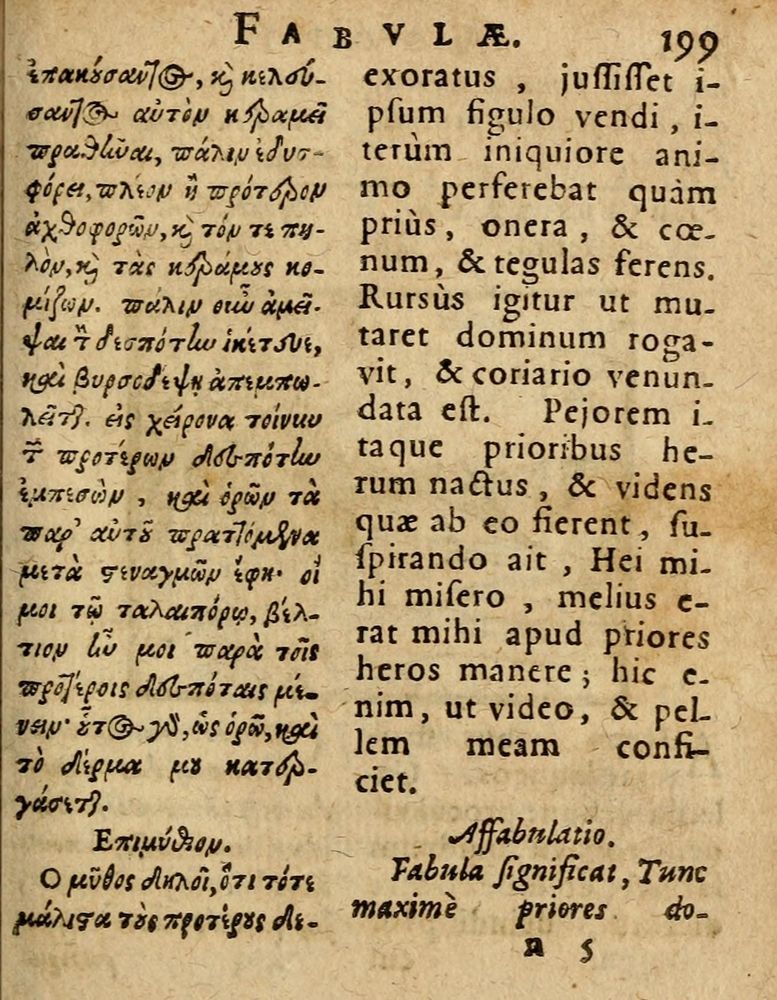 FABVLÆ. 199
ἐπακούσαντος, καὶ κελεύ-
σαντος αὐτὸν κεραμεῖ
πραθῆναι, πάλιν ἐδυσ-
φόρει, πλέον ἢ πρότερον
ἀχθοφορῶν, καὶ τόν τε πη-
λὸν, καὶ τὰς κεράμους κο-
μίζων. πάλιν οὖν ἀμεῖ-
ψαι τὸν δεσπότην ἱκέτευε,
καὶ βυρσοδέψῃ ἀπεμπω-
λεῖται. εἰς χείρονα τοίνυν
τῶν προτέρων δεσπότην
ἐμπεσὼν, καὶ ὁρῶν τὰ
παρ' αὐτοῦ πραττόμενα
μετὰ στεναγμῶν ἔφη· οἴ
μοι τῷ ταλαιπόρῳ, βέλ-
τιον ἦν μοι παρὰ τοῖς
προτέροις δεσπόταις μέ-
νειν· οὗτος γὰρ, ὡς ὁρῶ, καὶ
τὸ δέρμα μου κατερ-
γάσεται.
Επιμύθιον.
Ο μῦθος δηλοῖ, ὅτι τότε
μάλιστα τοὺς προτέρους δε-
exoratus, juſſiſſet i-
pſum figulo vendi, i-
terùm iniquiore ani-
mo perferebat quàm
priùs, onera, & cœ-
num, & tegulas ferens.
Rursùs igitur ut mu-
taret dominum roga-
vit, & coriario venun-
data eſt. Pejorem i-
taque prioribus he-
rum nactus, & videns
quæ ab eo fierent, ſu-
ſpirando ait, Hei mi-
hi miſero, melius e-
rat mihi apud priores
heros manere; hic e-
nim, ut video, & pel-
lem meam confi-
ciet.
Affabulatio.
Fabula ſignificat, Tunc
maximè priores do-
n 5